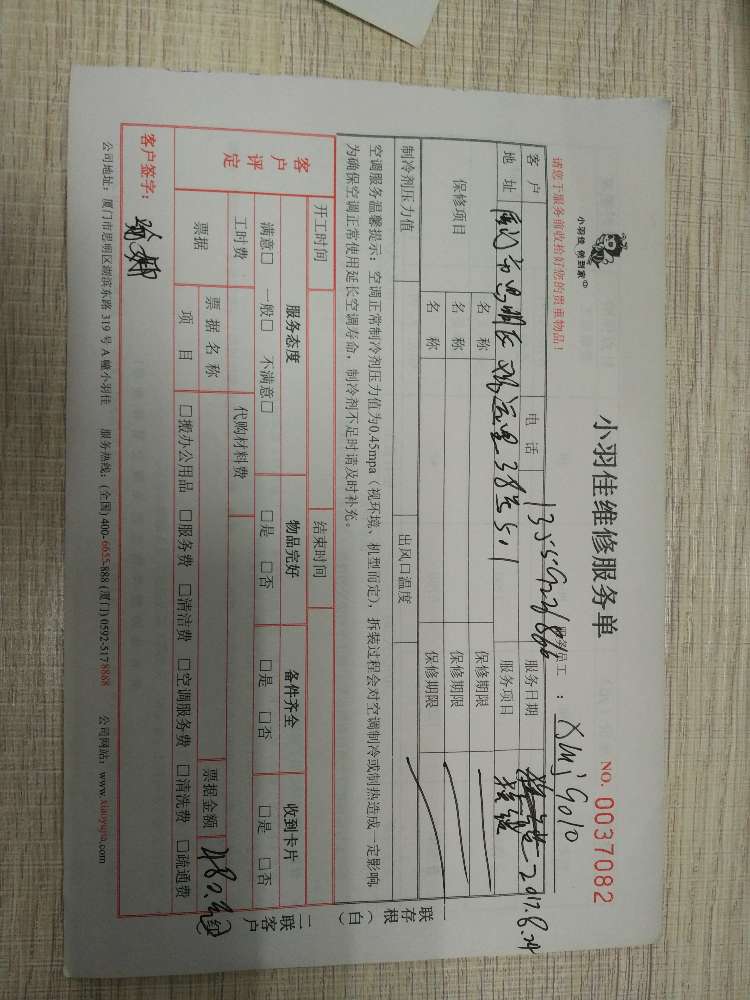 请您于服务前收检好您的贵重物品!
小羽佳 做到家
小羽佳维修服务单
NO. 0037082
服务员工: XMJ G010
客户
电话
服务日期
2017.8.24
地址
服务项目
保修项目
名称
保修期限
名称
保修期限
名称
保修期限
制冷剂压力值
出风口温度
空调服务温馨提示:空调正常制冷剂压力值为0.45mpa(视环境、机型而定),拆装过程会对空调制冷或制热造成一定影响,
为确保空调正常使用延长空调寿命,制冷剂不足时请及时补充。
开工时间
结束时间
客户评定
服务态度
物品完好
备件齐全
收到卡片
满意□ 一般□ 不满意□
□是 □否
□是 □否
□是 □否
工时费
代购材料费
票据
票据名称
票据金额
项目
□搬办公用品 □服务费 □清洁费 □空调服务费 □清洗费 □疏通费
客户签字:
公司地址:厦门市思明区湖滨东路 319 号 A 幢小羽佳 服务热线:(全国) 400-6655-888 (厦门) 0592-5178888 公司网站:www.xiaoyujia.com
一联存根(白)
二联客户(红)